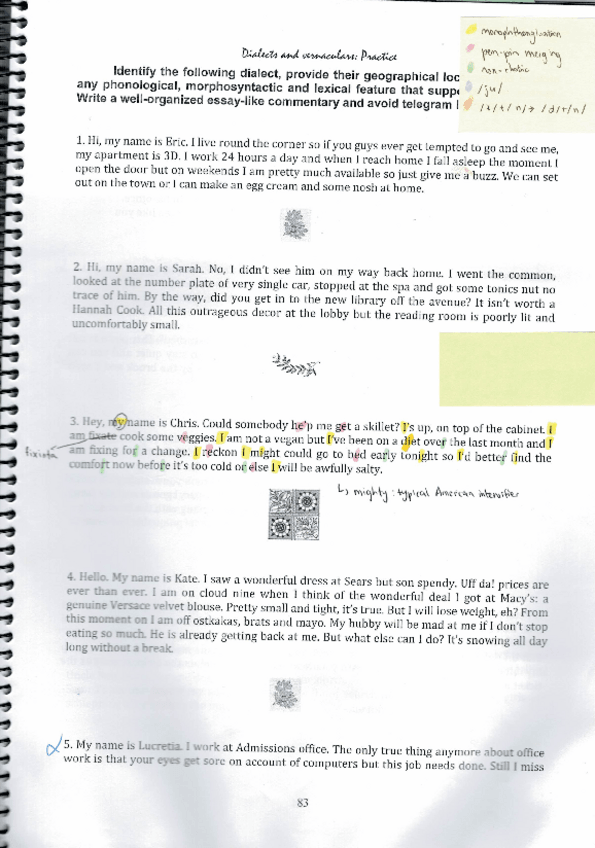 monophthongization
pen-pin merging
non-rhotic
/ju/
Dialects and vernaculars: Practice
Identify the following dialect, provide their geographical loc
any phonological, morphosyntactic and lexical feature that supp
Write a well-organized essay-like commentary and avoid telegram l
1. Hi, my name is Eric. I live round the corner so if you guys ever get tempted to go and see me,
my apartment is 3D. I work 24 hours a day and when I reach home I fall asleep the moment I
open the door but on weekends I am pretty much available so just give me a buzz. We can set
out on the town or I can make an egg cream and some nosh at home.
2. Hi, my name is Sarah. No, I didn't see him on my way back home. I went the common,
looked at the number plate of very single car, stopped at the spa and got some tonics nut no
trace of him. By the way, did you get in to the new library off the avenue? It isn't worth a
Hannah Cook. All this outrageous decor at the lobby but the reading room is poorly lit and
uncomfortably small.
3. Hey, my name is Chris. Could somebody he'p me get a skillet? I's up, on top of the cabinet. I
am fixate cook some veggies. I am not a vegan but I've been on a diet over the last month and I
am fixing for a change. I reckon I might could go to bed early tonight so I'd better find the
comfort now before it's too cold or else I will be awfully salty.
↳ mighty: typical American intensifier
4. Hello. My name is Kate. I saw a wonderful dress at Sears but son spendy. Uff da! prices are
ever than ever. I am on cloud nine when I think of the wonderful deal I got at Macy's: a
genuine Versace velvet blouse. Pretty small and tight, it's true. But I will lose weight, eh? From
this moment on I am off ostkakas, brats and mayo. My hubby will be mad at me if I don't stop
eating so much. He is already getting back at me. But what else can I do? It's snowing all day
long without a break.
5. My name is Lucretia. I work at Admissions office. The only true thing anymore about office
work is that your eyes get sore on account of computers but this job needs done. Still I miss
83